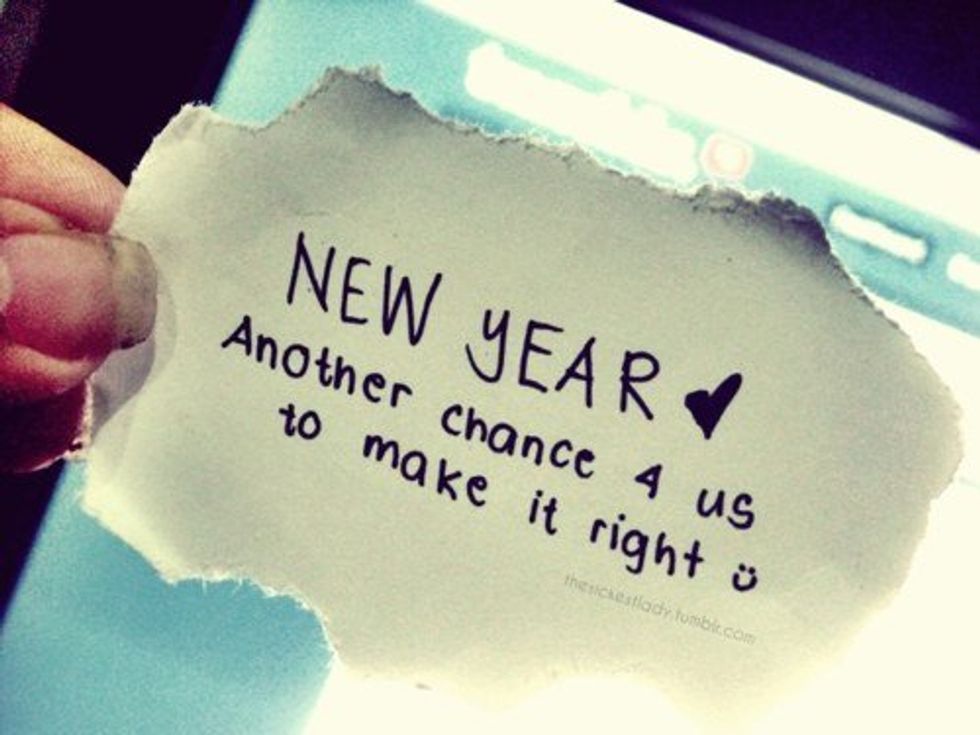 NEW YEAR ♥
Another chance 4 us
to make it right ☺
thesickestlady.tumblr.com